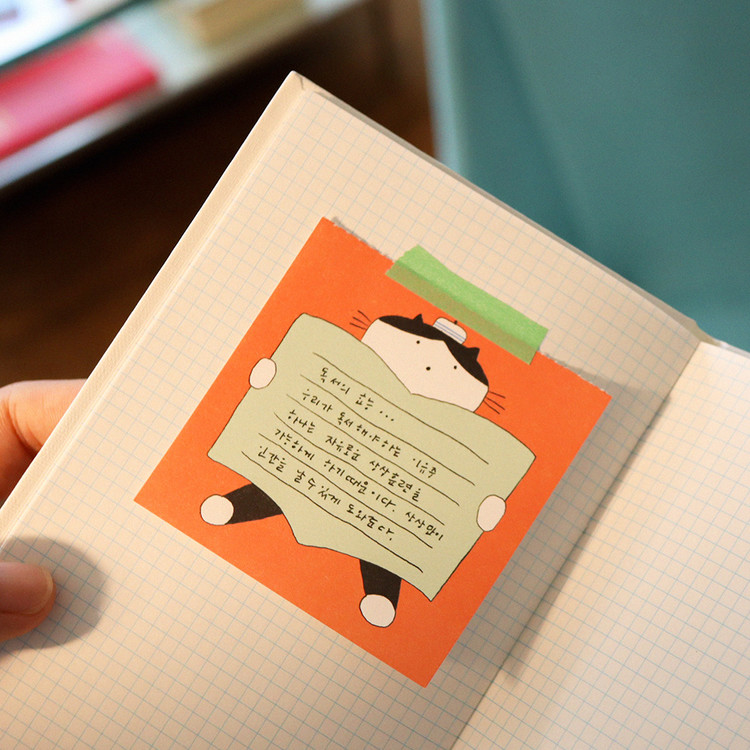 독서의 효능...
우리가 독서해야하는 이유중
하나는 자유로운 상상훈련을
가능하게 하기때문이다. 상상만이
인간을 날 수 있게 도와준다.